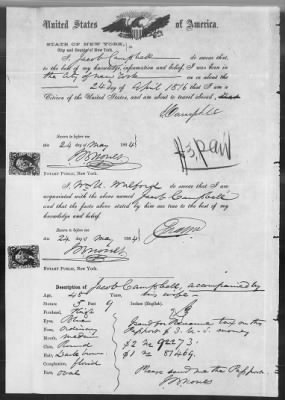 United States of America.
STATE OF NEW YORK,
City and County of New York.
I, Jacob Campbell do swear that
to the best of my knowledge, information and belief, I was born in
the City of New York on or about the
24 day of April 1816 that I am a
Citizen of the United States, and am about to travel abroad,
J Campbell
Sworn to before me
this 24 day of May 1864
$3, paid
NOTARY PUBLIC, New York.
I, Wm H. do swear that I am
acquainted with the above named Jacob Campbell
and that the facts above stated by him are true to the best of my
knowledge and belief.
Sworn to before me
this 24 day of May 1864
NOTARY PUBLIC, New York.
Description of Jacob Campbell, accompanied by
Age, 48 Years, his wife
Stature, 5 Feet 9 Inches (English).
Forehead, High
Eyes, Blue
Nose, ordinary
Mouth, medium
Chin, Round
Hair, Dark brown
Complexion, florid
Face, oval
I send for Revenue tax on this
Passport $3. U.S. money
$2 No 92273.
$1 No 81469.
Please send me the Passport.